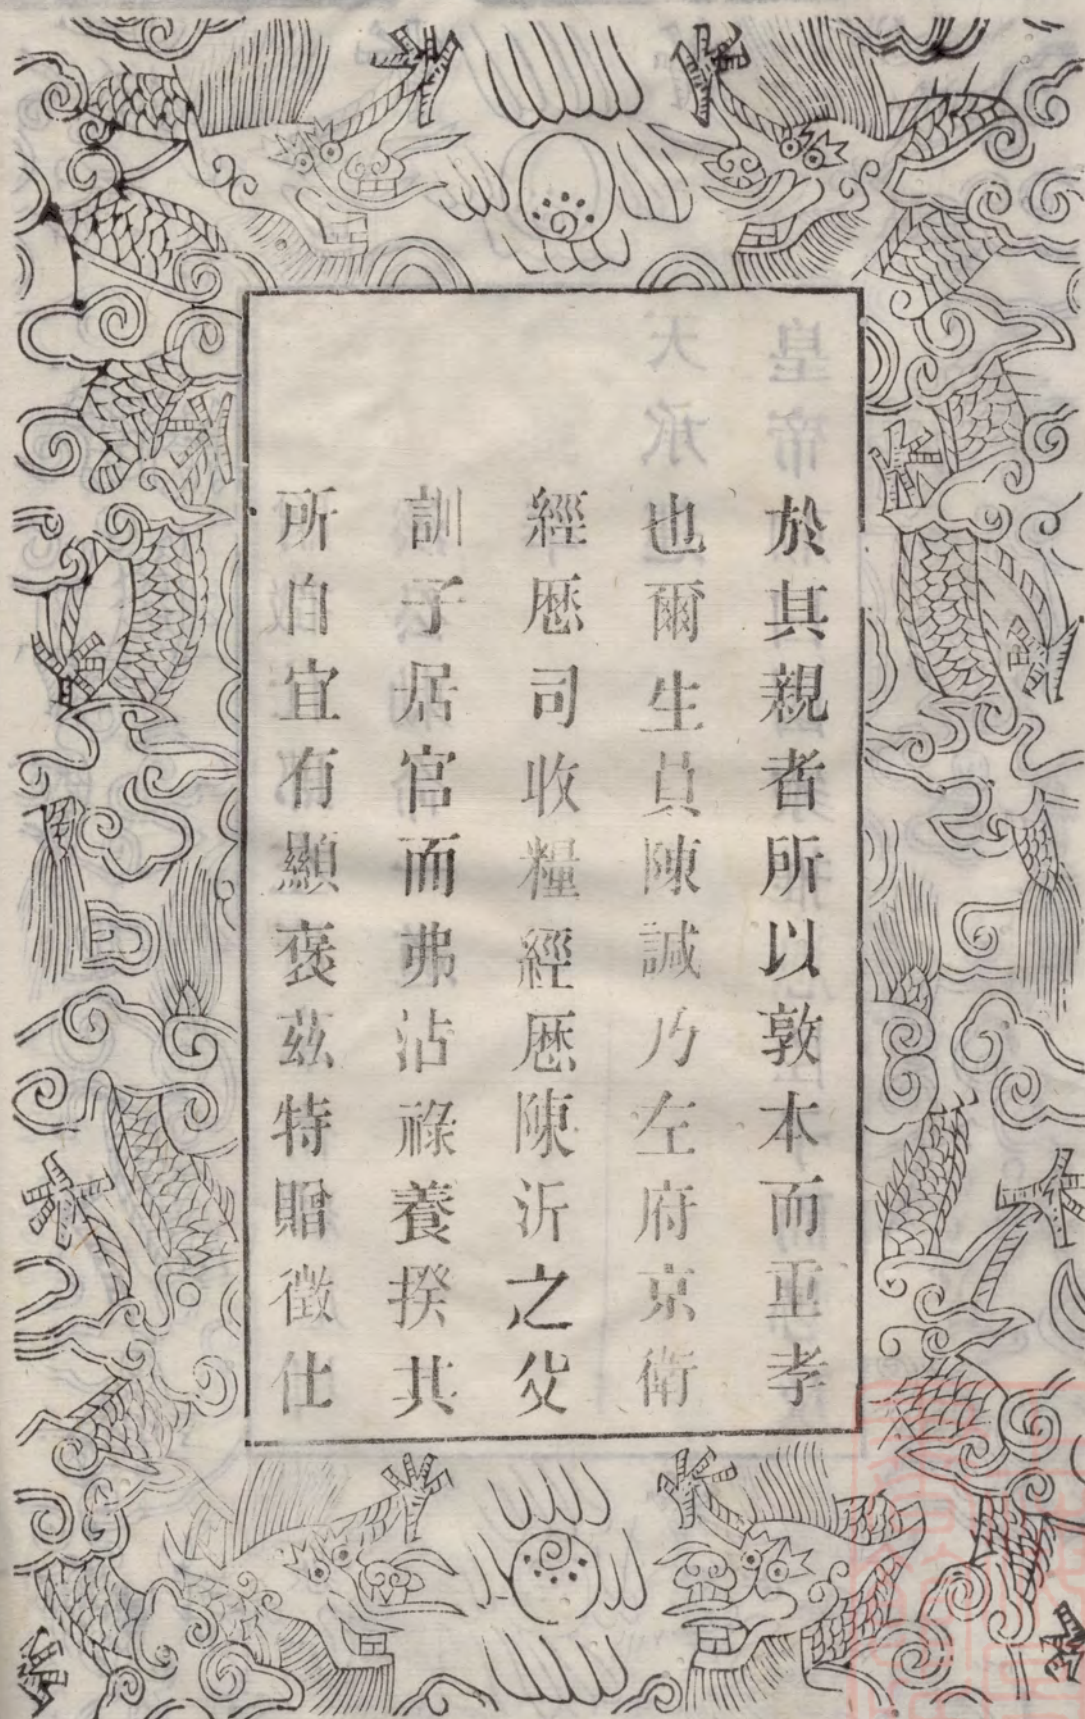 於其親者所以敦本而重孝
也爾生員陳諴乃左府京衛
經歷司收糧經歷陳沂之父
訓子居官而弗沾祿養揆其
所自宜有顯褒茲特贈徵仕